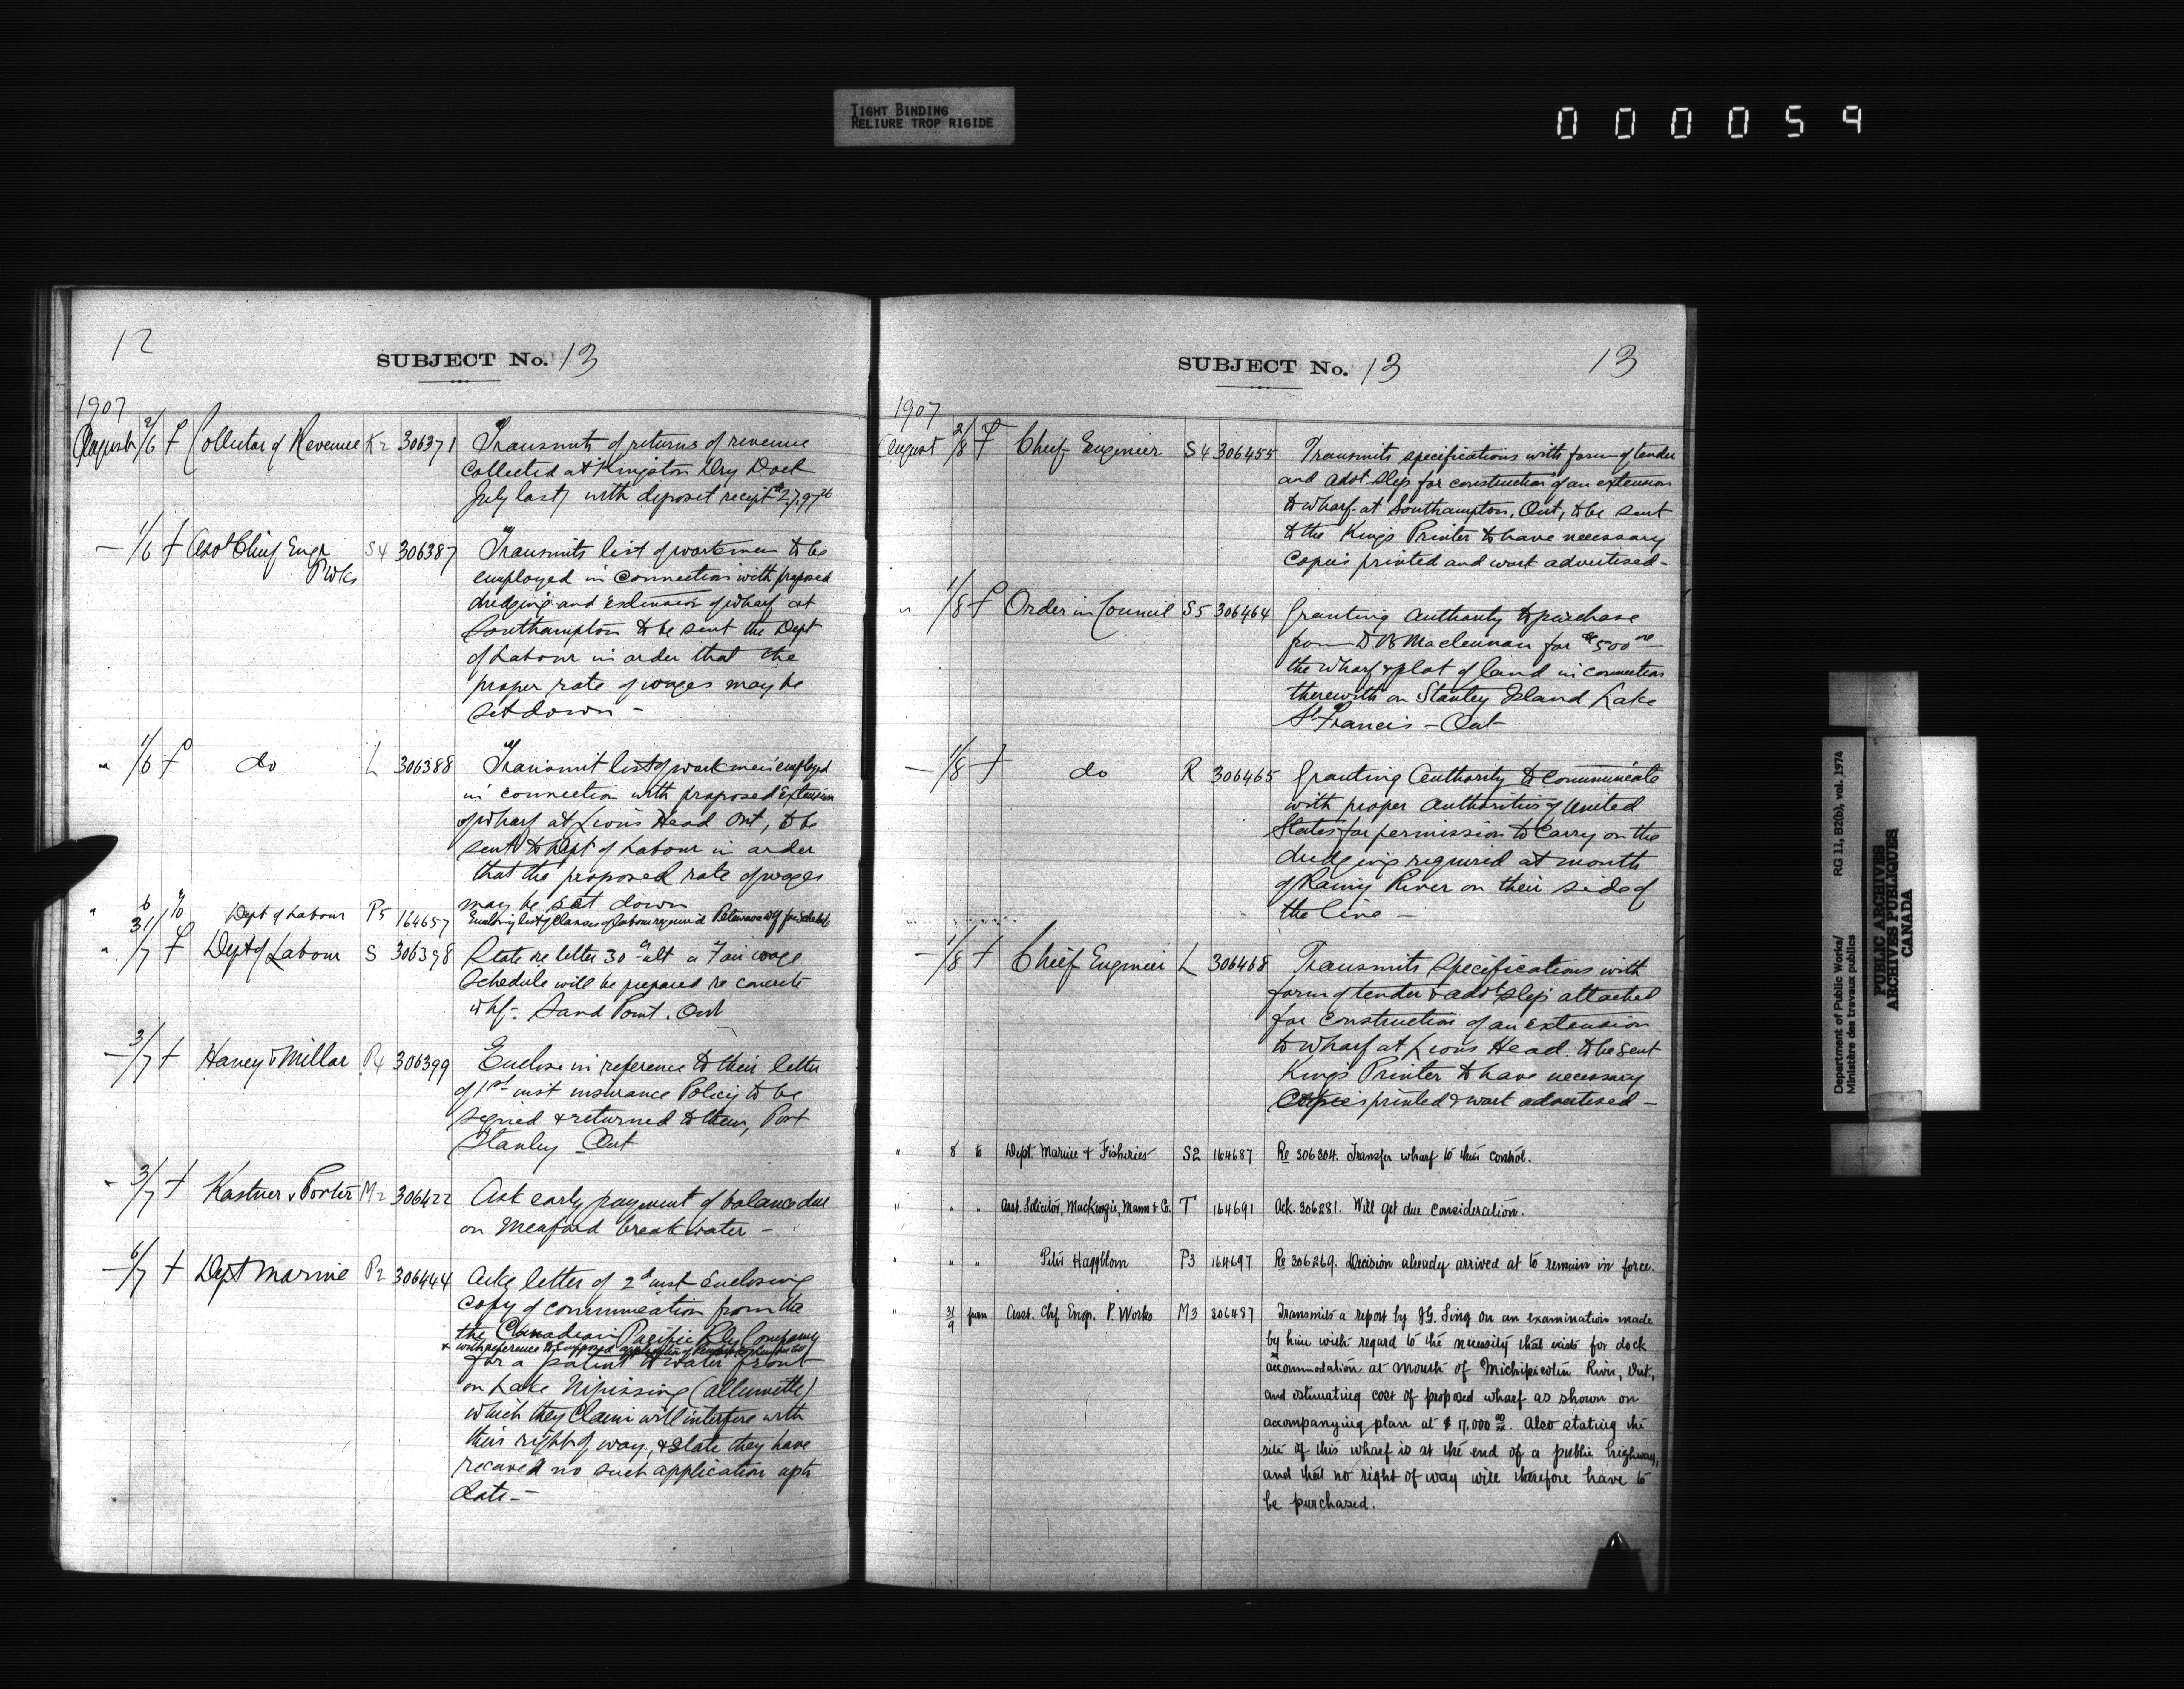 TIGHT BINDING
RELIURE TROP RIGIDE
000059
12
SUBJECT No. 13
1907
August 2/6 F Collector of Revenue K2 306371 Transmits returns of revenue
collected at Kingston Dry Dock
July last, with deposit receipt
— 1/6 f Asst Chief Engr S4 306387 Transmits list of workmen to be
P Wks employed in connection with proposed
dredging and extension of wharf at
Southampton to be sent the Dept
of Labour in order that the
proper rate of wages may be
set down —
" 1/6 f do L 306388 Transmit list of workmen employed
in connection with proposed Extension
of wharf at Lions Head Ont, to be
sent to Dept of Labour in order
that the proposed rate of wages
may be set down
" 6 to Dept of Labour P5 164657 Enclosing list of classes of labour required Petawawa whf for schedule
" 31/7 F Dept of Labour S 306398 State re letter 30th ult a Fair wage
schedule will be prepared re concrete
whf. Sand Point. Ont
— 3/7 f Haney & Millar P4 306399 Enclose in reference to their letter
of 1st inst insurance Policy to be
signed & returned to them, Port
Stanley Ont
" 3/7 f Kastner & Porter M2 306422 Ask early payment of balance due
on Meaford breakwater —
— 6/7 f Dept Marine P2 306444 Ackg letter of 2d inst Enclosing
copy of communication from the
the Canadian Pacific Rly Company
x with reference to supposed application of
for a patent to water front
on Lake Nipissing (allumette)
which they Claim will interfere with
their right of way, & state they have
received no such application up to
date —
SUBJECT No. 13
13
1907
August 2/8 F Chief Engineer S4 306455 Transmits specifications with form of tender
and advt slip for construction of an extension
to wharf at Southampton, Ont, to be sent
to the Kings Printer to have necessary
Copies printed and work advertised —
" 1/8 f Order in Council S5 306464 Granting Authority to purchase
from D B Maclennan for $500 00
the wharf & plot of land in connection
therewith on Stanley Island Lake
St Francis — Ont
— 1/8 f do R 306465 Granting Authority to Communicate
with proper Authorities of United
States for permission to Carry on the
dredging required at mouth
of Rainy River on their side of
the line —
— 1/8 f Chief Engineer L 306468 Transmits Specifications with
form of tender & advt slip attached
for construction of an extension
to wharf at Lions Head to be sent
Kings Printer to have necessary
Copies printed & work advertised —
" 8 to Dept. Marine & Fisheries S2 164687 Re 306304. Transfer wharf to their control.
" " " Asst. Solicitor, MacKenzie, Mann & Co. T 164691 Ack. 306281. Will get due consideration.
" " " Peter Haggblom P3 164697 Re 306269. Decision already arrived at to remain in force.
" 31/9 from Asst. Chf. Engr. P. Works M3 306487 Transmits a report by J.G. Sing on an examination made
by him with regard to the necessity that exists for dock
accommodation at mouth of Michipicoten River, Ont.,
and estimating cost of proposed wharf as shown on
accompanying plan at $17,000 00. Also stating the
site of this wharf is at the end of a public highway,
and that no right of way will therefore have to
be purchased.
Department of Public Works/ RG 11, B2(b), vol. 1974
Ministère des travaux publics
PUBLIC ARCHIVES
ARCHIVES PUBLIQUES
CANADA